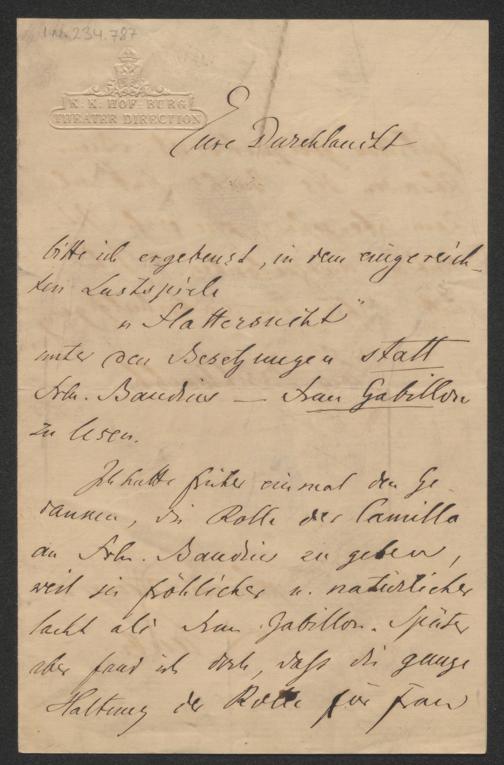 I.N. 234.787
K. K. HOF-BURG
THEATER DIRECTION
Eure Durchlaucht
bitte ich ergebenst, in dem eingereich-
ten Lustspiele
„Flattersucht"
unter den Besetzungen statt
Frln. Baudius — Frau Gabillon
zu lesen.
Ich hatte früher einmal den Ge-
danken, die Rolle der Camilla
an Frln. Baudius zu geben,
weil sie fröhlicher u. natürlicher
lacht als Frau Gabillon. Später
aber fand ich doch, daß die ganze
Haltung der Rolle für Frau